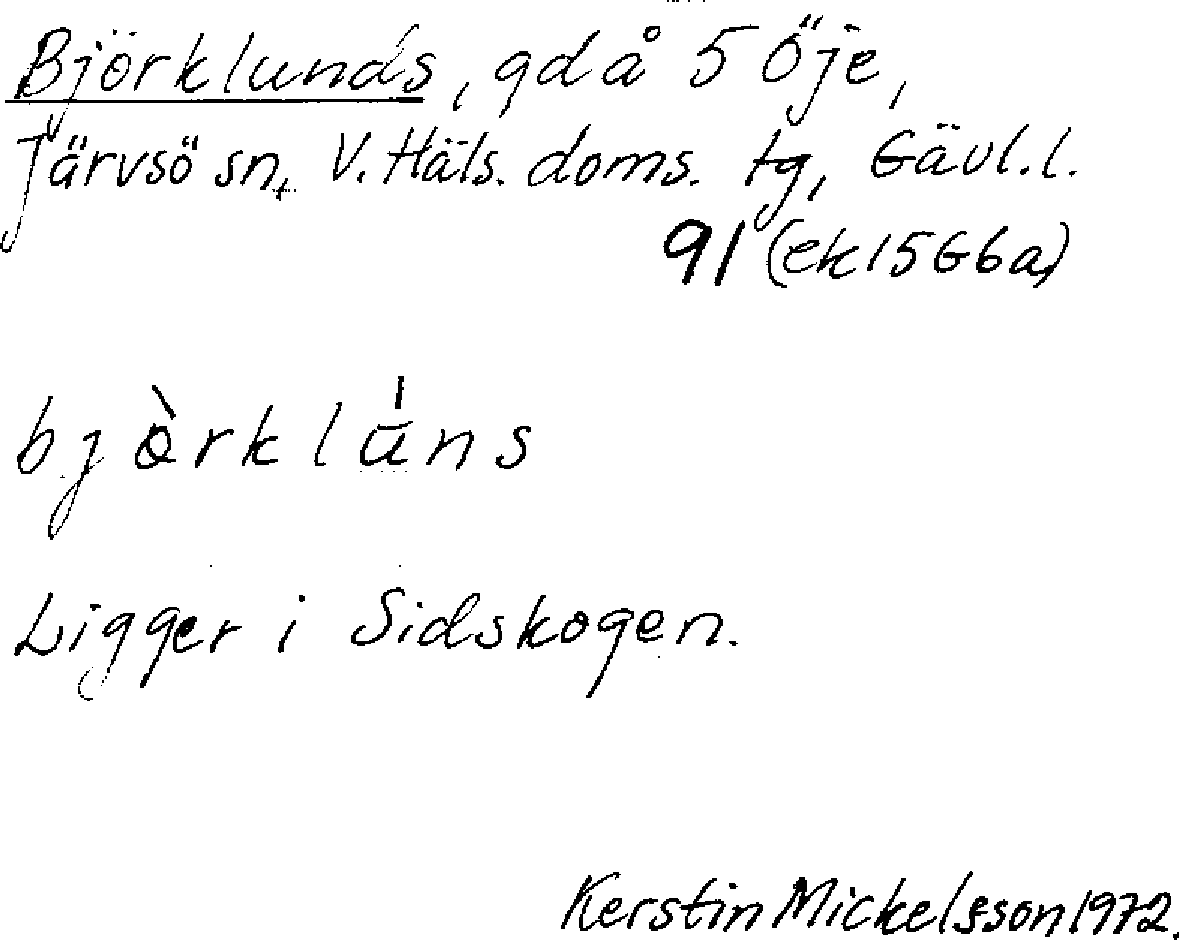 Björklunds, gd å 5 Öje,
Järvsö sn, V. Häls. doms. tg, Gävl. l.
91 (ek 15G6a)
bjòrklúns
Ligger i Sidskogen.
Kerstin Mickelsson 1972.